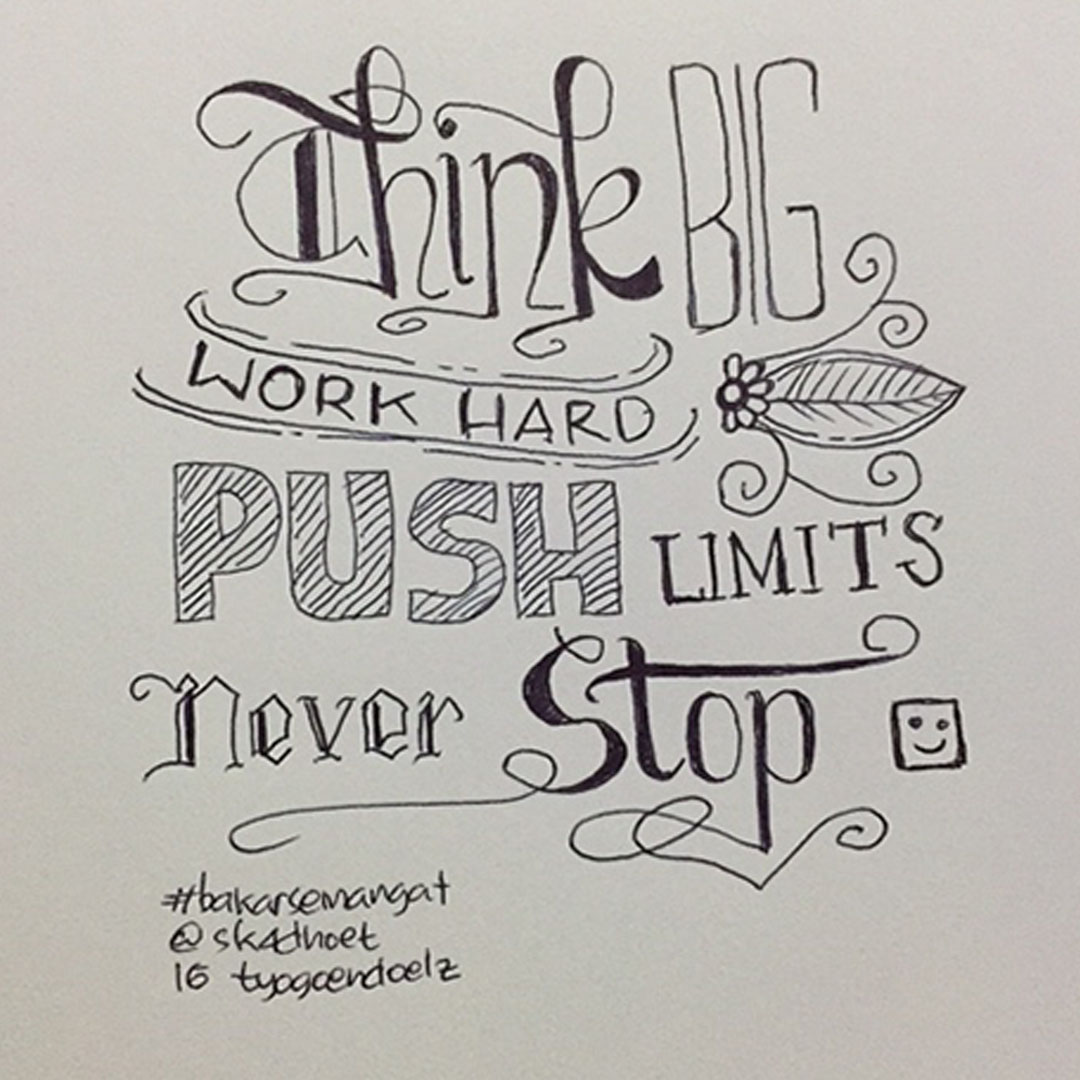 Think BIG
WORK HARD
PUSH LIMITS
never Stop
#bakarsemangat
@sk4dhoet
IG tyogoendoelz